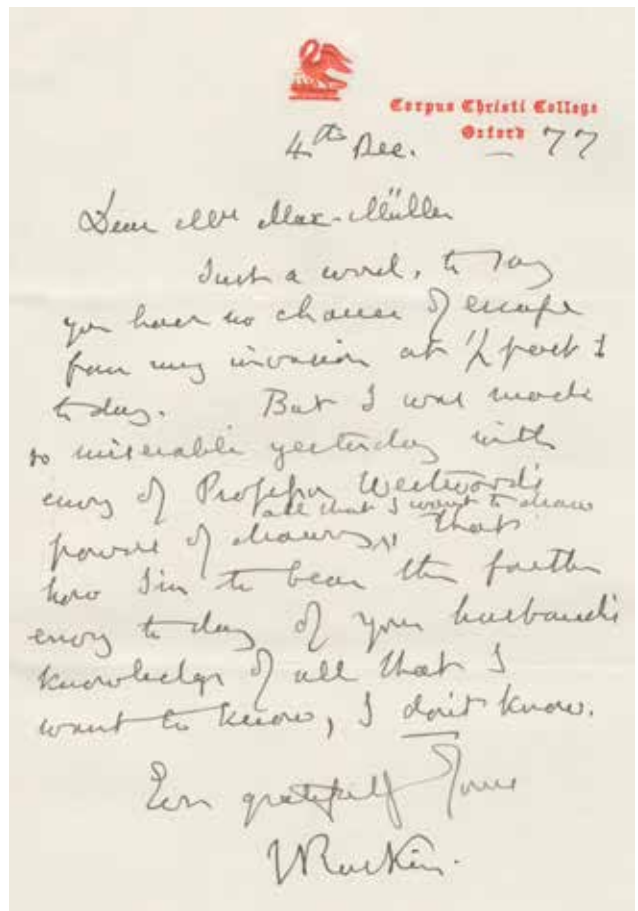 Corpus Christi College
Oxford
4th Dec. 77
Dear Mrs Max-Müller
Just a word, to say
you have no chance of escape
from my invasion at ½ past 1
to day. But I was made
so miserable yesterday with
envy of Professor Westwood's
all that I want to draw
powers of drawing, that
how I'm to bear the further
envy to day of your husband's
knowledge of all that I
want to know, I don't know.
Ever gratefully Yours
J Ruskin.